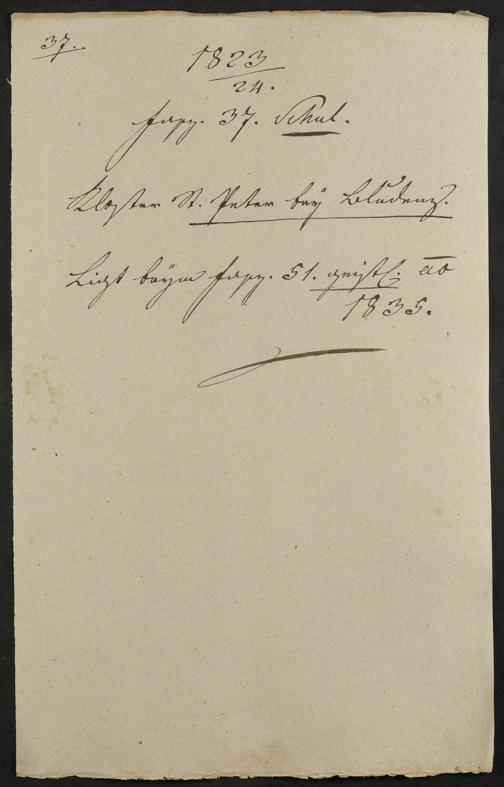 37.
1823
24.
Fasz. 37. Schul.
Kloster St. Peter bey Bludenz.
Ligt beym Fasz. 51. geistl. ao
1835.